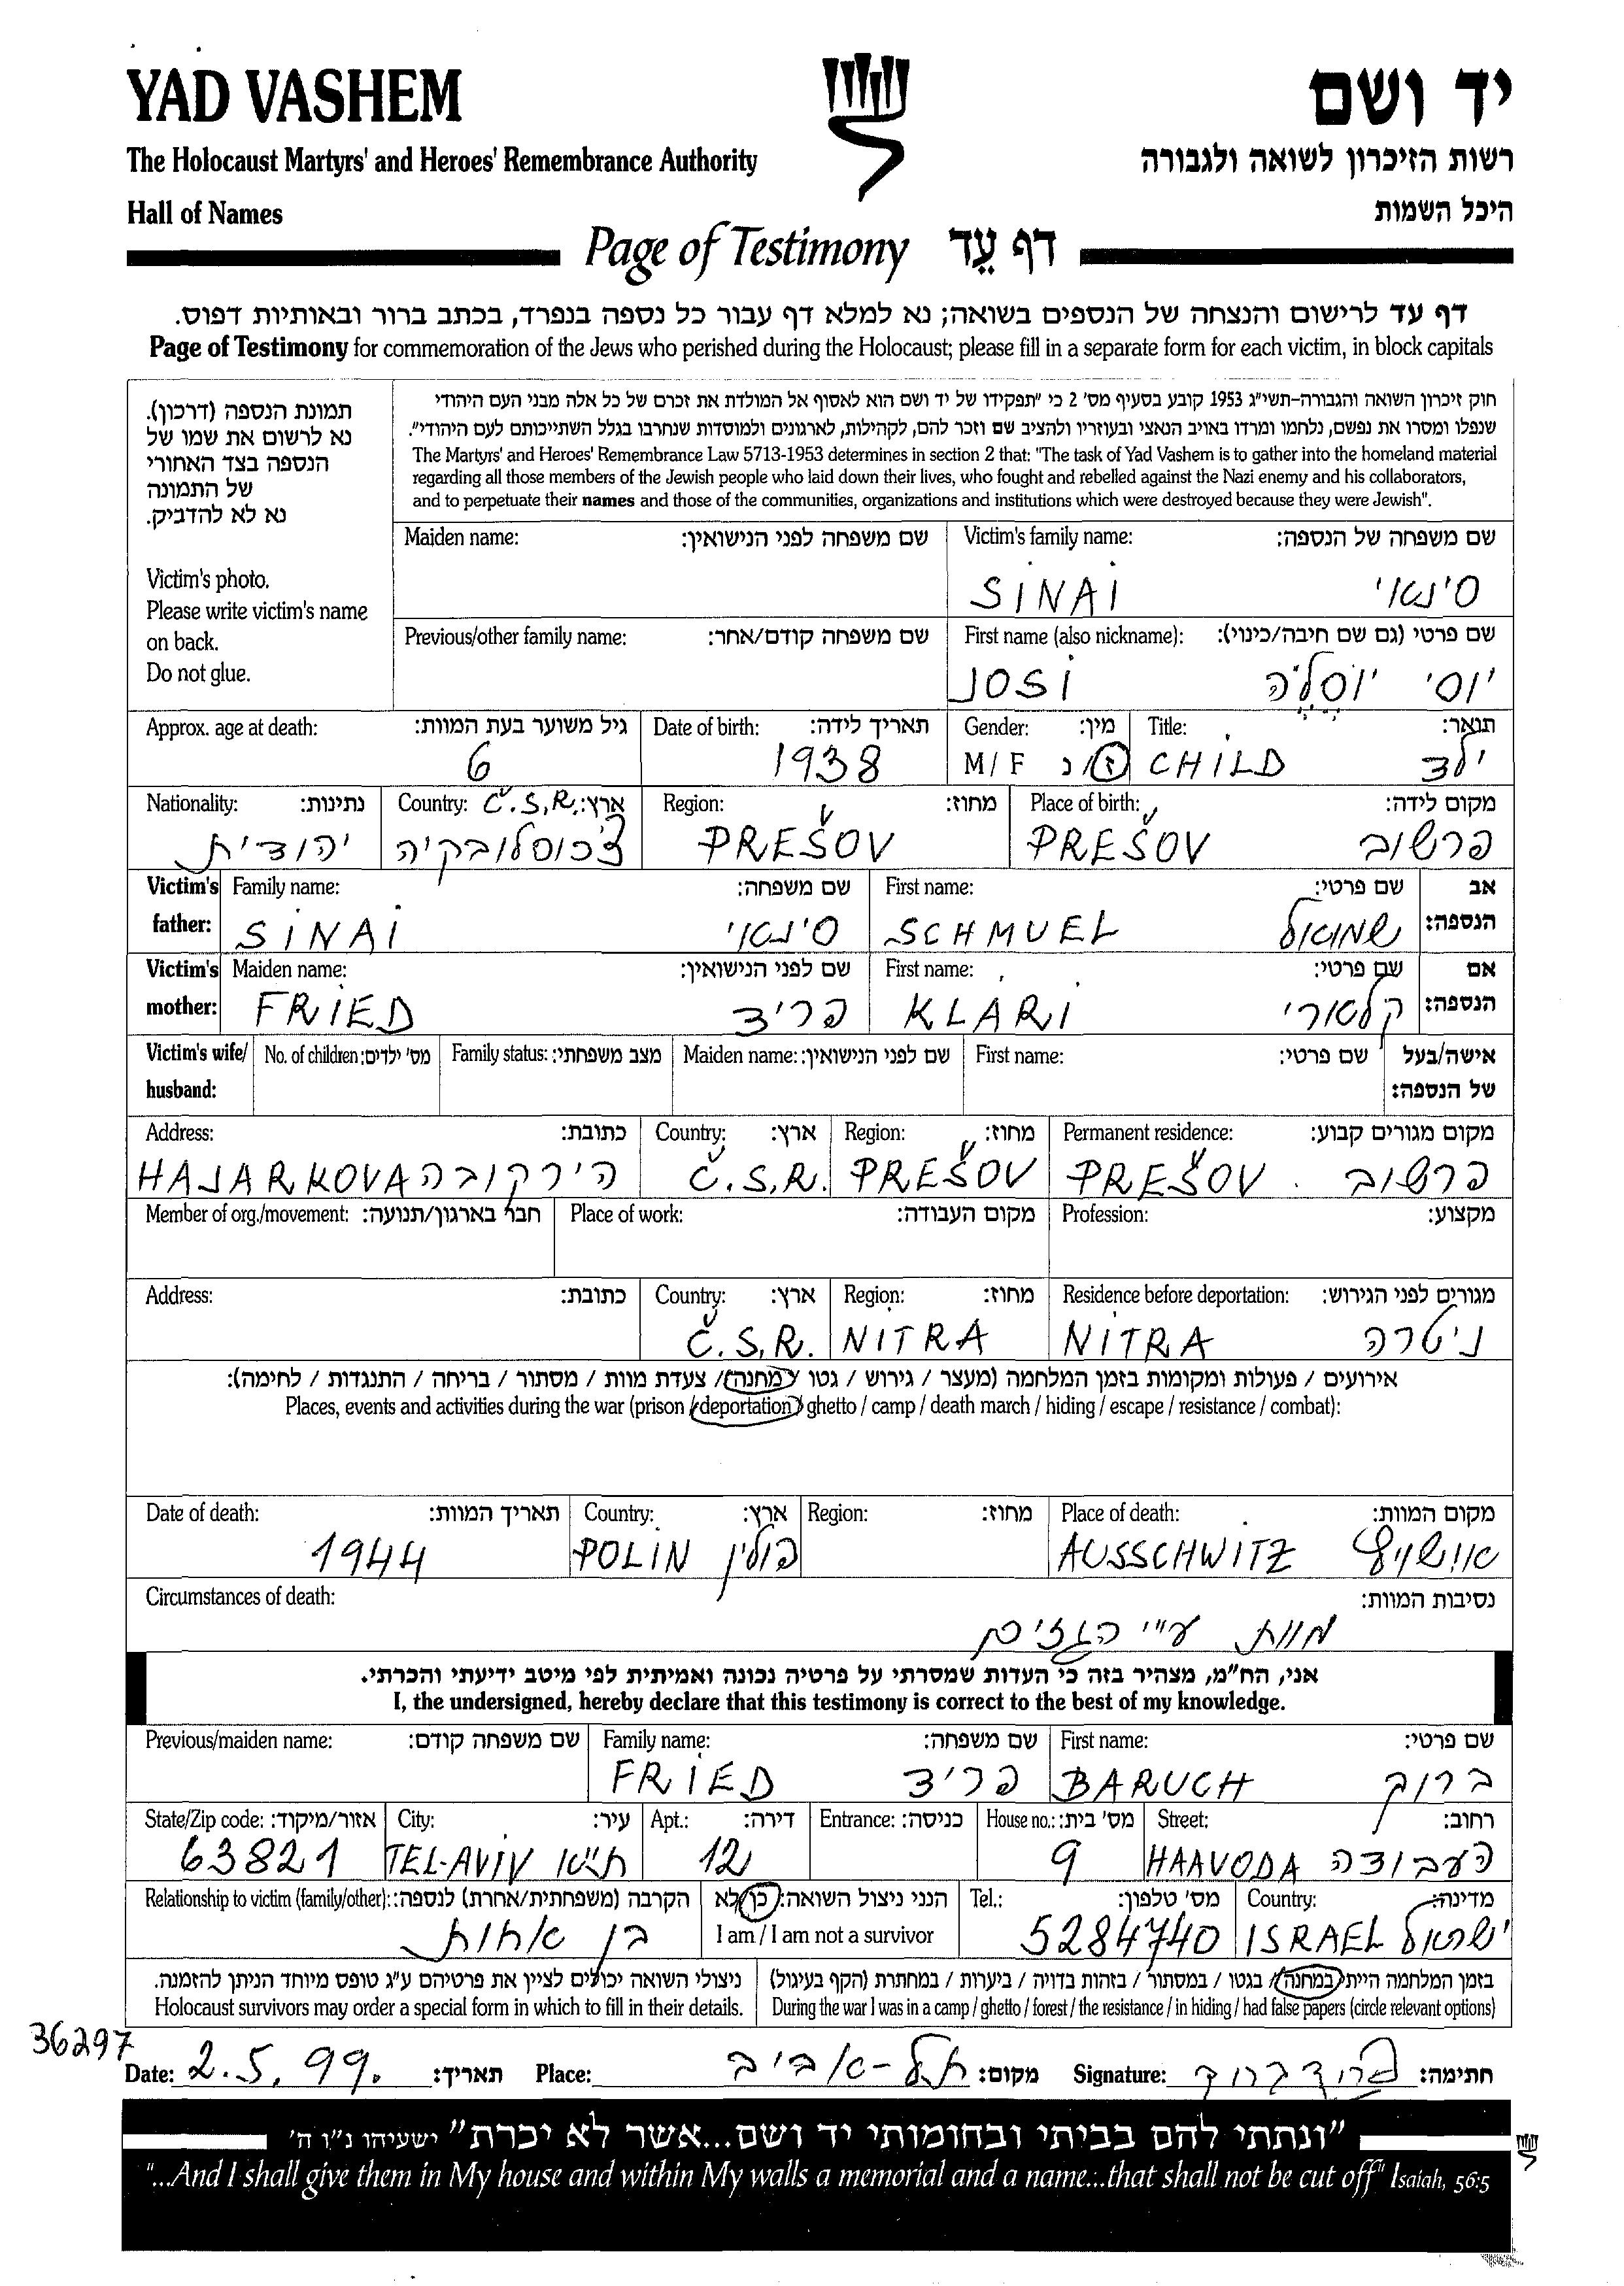 YAD VASHEM יד ושם
The Holocaust Martyrs' and Heroes' Remembrance Authority רשות הזיכרון לשואה ולגבורה
Hall of Names היכל השמות
Page of Testimony דף עֵד
דף עד לרישום והנצחה של הנספים בשואה; נא למלא דף עבור כל נספה בנפרד, בכתב ברור ובאותיות דפוס.
Page of Testimony for commemoration of the Jews who perished during the Holocaust; please fill in a separate form for each victim, in block capitals
תמונת הנספה (דרכון).
נא לרשום את שמו של
הנספה בצד האחורי
של התמונה
נא לא להדביק.
Victim's photo.
Please write victim's name
on back.
Do not glue.
חוק זיכרון השואה והגבורה-תשי"ג 1953 קובע בסעיף מס' 2 כי "תפקידו של יד ושם הוא לאסוף אל המולדת את זכרם של כל אלה מבני העם היהודי
שנפלו ומסרו את נפשם, נלחמו ומרדו באויב הנאצי ובעוזריו ולהציב שם וזכר להם, לקהילות, לארגונים ולמוסדות שנחרבו בגלל השתייכותם לעם היהודי".
The Martyrs' and Heroes' Remembrance Law 5713-1953 determines in section 2 that: "The task of Yad Vashem is to gather into the homeland material
regarding all those members of the Jewish people who laid down their lives, who fought and rebelled against the Nazi enemy and his collaborators,
and to perpetuate their names and those of the communities, organizations and institutions which were destroyed because they were Jewish".
Maiden name: שם משפחה לפני הנישואין: Victim's family name: שם משפחה של הנספה:
SINAI סינאי
Previous/other family name: שם משפחה קודם/אחר: First name (also nickname): שם פרטי (גם שם חיבה/כינוי):
JOSI יוסי יוֹסֶלֶה
Approx. age at death: גיל משוער בעת המוות: Date of birth: תאריך לידה: Gender: מין: Title: תואר:
6 1938 M/F ז/נ CHILD ילד
Nationality: נתינות: Country: Č.S.R. ארץ: Region: מחוז: Place of birth: מקום לידה:
יהודית צ'כוסלובקיה PREŠOV PREŠOV פרשוב
Victim's Family name: שם משפחה: First name: שם פרטי: אב
father: SINAI סינאי SCHMUEL שמואל הנספה:
Victim's Maiden name: שם לפני הנישואין: First name: שם פרטי: אם
mother: FRIED פריד KLARI קלארי הנספה:
Victim's wife/ No. of children: מס' ילדים: Family status: מצב משפחתי: Maiden name: שם לפני הנישואין: First name: שם פרטי: אישה/בעל
husband: של הנספה:
Address: כתובת: Country: ארץ: Region: מחוז: Permanent residence: מקום מגורים קבוע:
HAJARKOVA הירקובה Č.S.R. PREŠOV PREŠOV פרשוב
Member of org./movement: חבר בארגון/תנועה: Place of work: מקום העבודה: Profession: מקצוע:
Address: כתובת: Country: ארץ: Region: מחוז: Residence before deportation: מגורים לפני הגירוש:
Č.S.R. NITRA NITRA ניטרה
אירועים / פעולות ומקומות בזמן המלחמה (מעצר / גירוש / גטו / מחנה / צעדת מוות / מסתור / בריחה / התנגדות / לחימה):
Places, events and activities during the war (prison / deportation / ghetto / camp / death march / hiding / escape / resistance / combat):
Date of death: תאריך המוות: Country: ארץ: Region: מחוז: Place of death: מקום המוות:
1944 POLIN פולין AUSSCHWITZ אושויץ
Circumstances of death: נסיבות המוות:
מוות ע"י הגזים
אני, הח"מ, מצהיר בזה כי העדות שמסרתי על פרטיה נכונה ואמיתית לפי מיטב ידיעתי והכרתי.
I, the undersigned, hereby declare that this testimony is correct to the best of my knowledge.
Previous/maiden name: שם משפחה קודם: Family name: שם משפחה: First name: שם פרטי:
FRIED פריד BARUCH ברוך
State/Zip code: אזור/מיקוד: City: עיר: Apt.: דירה: Entrance: כניסה: House no.: מס' בית: Street: רחוב:
63821 TEL-AVIV ת"א 12 9 HAAVODA העבודה
Relationship to victim (family/other): הקרבה (משפחתית/אחרת) לנספה: הנני ניצול השואה: כן/לא Tel.: מס' טלפון: Country: מדינה:
בן אחות I am / I am not a survivor 5284740 ISRAEL ישראל
ניצולי השואה יכולים לציין את פרטיהם ע"ג טופס מיוחד הניתן להזמנה. בזמן המלחמה הייתי במחנה / בגטו / במסתור / בזהות בדויה / ביערות / במחתרת (הקף בעיגול)
Holocaust survivors may order a special form in which to fill in their details. During the war I was in a camp / ghetto / forest / the resistance / in hiding / had false papers (circle relevant options)
36297
Date: 2.5.99. תאריך: Place: תל-אביב מקום: Signature: פריד ברוך חתימה:
"ונתתי להם בביתי ובחומותי יד ושם...אשר לא יכרת" ישעיהו נ"ו ה'
"...And I shall give them in My house and within My walls a memorial and a name...that shall not be cut off" Isaiah, 56:5